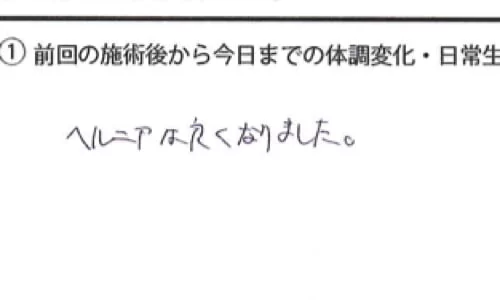 ① 前回の施術後から今日までの体調変化・日常生
ヘルニアは良くなりました。